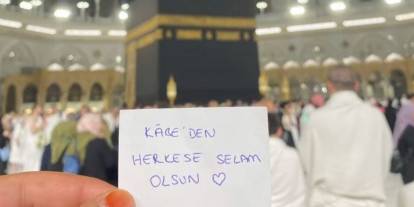 KÂBE'DEN
HERKESE SELAM
OLSUN ♡